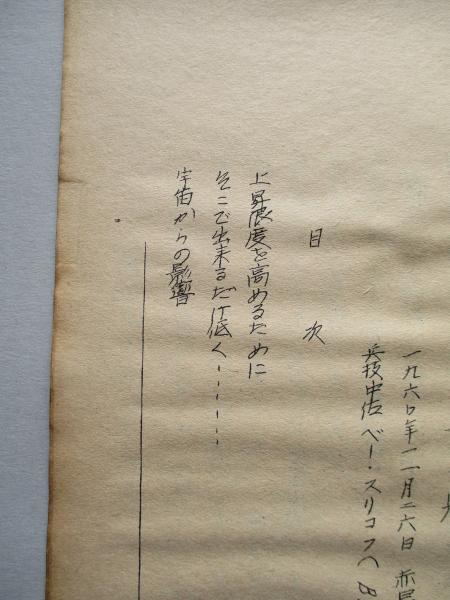 一九六〇年一一月二六日 赤
兵技中佐 ベー・スリコフ(B
目次
上昇限度を高めるために
そこで出来るだけ低く------
宇宙からの影響